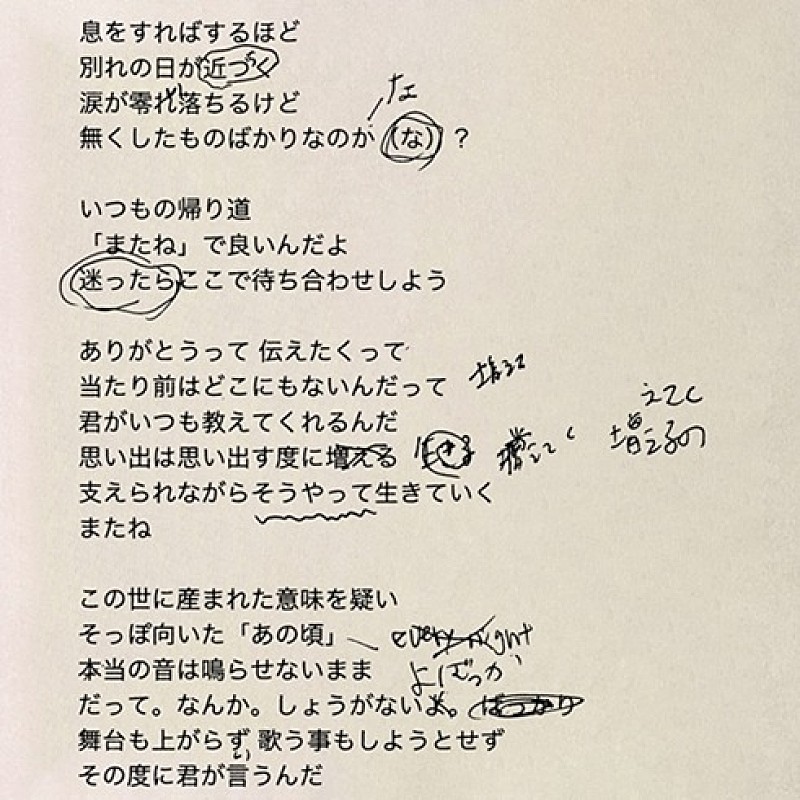 息をすればするほど
別れの日が近づく
涙が零れ落ちるけど
な
無くしたものばかりなのか(な)?
いつもの帰り道
「またね」で良いんだよ
迷ったらここで待ち合わせしよう
ありがとうって 伝えたくって
当たり前はどこにもないんだって
君がいつも教えてくれるんだ
えてく
思い出は思い出す度に増える
増えるの
支えられながらそうやって生きていく
またね
この世に産まれた意味を疑い
そっぽ向いた「あの頃」 every night
本当の音は鳴らせないまま よばっか
だって。なんか。しょうがないよ。 ばっかり
舞台も上がらず 歌う事もしようとせず
その度に君が言うんだ